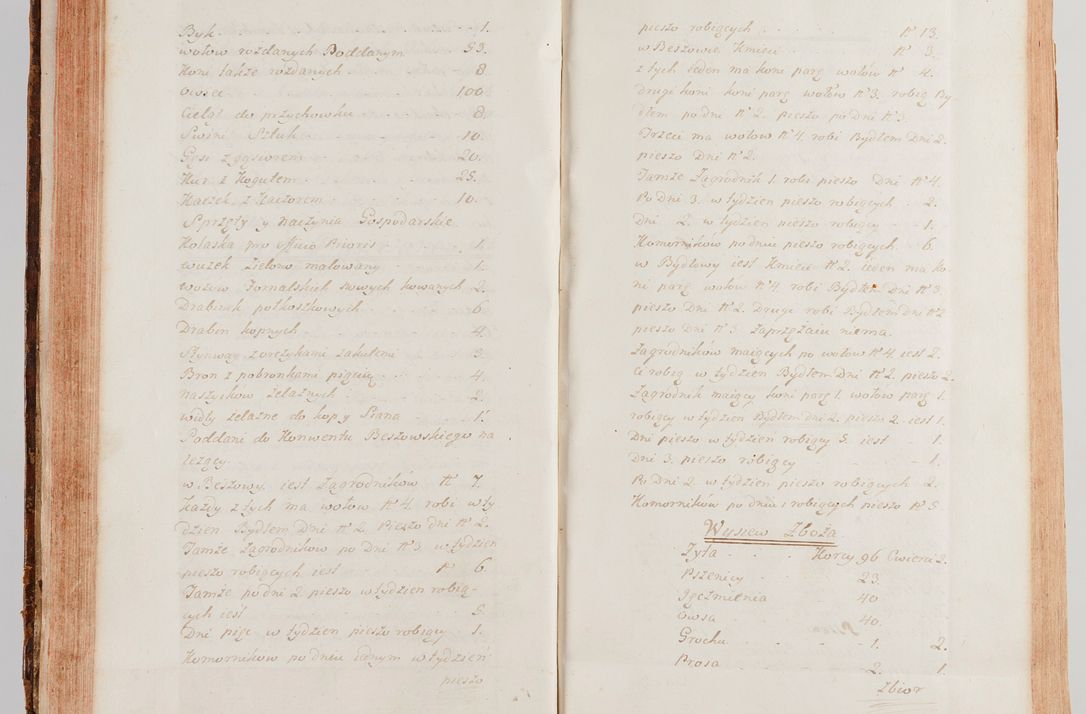 Byk 1.
wołow rozdanych Poddanym 53.
Koni także rozdanych 8
owiec 100
Cieląt do przychowku 8.
Swini Sztuk 10.
Gęsi z gąsiorem 20.
Kur z Kogutem 25.
Kaczek z Kaczorem 10.
Sprzęty y naczynia Gospodarskie
Kolaska pro officio Prioris 1.
wuzek Zielono malowany 1.
wozow fornalskich nowych kowanych 2.
Drabinek połkoszkowych 6
Drabin kopnych 4.
z oręzykami 3.
Bron z pobronkami pięcią 4.
naszyikow żelaznych 2.
widły żelazne do kopy Siana 1.
Poddani do Konwentu Beszowskiego na
lezący.
w Beszowy iest Zagrodników N 7.
każdy z tych ma wołow N 4. robi w ty
dzien Bydłem Dni N 2. Pieszo dni N 2.
Tamże Zagrodnikow po Dni N 3. w tydzien
pieszo robiących iest N 6.
Tamże po dni 2. pieszo w tydzien robią-
cych iest 5.
Dni pięc w tydzien pieszo robiący 1.
Komornikow po dniu iednym w tydzień
pieszo
pieszo robiących N 13.
w Beszowie Kmieci N 3.
z tych ieden ma koni parę wołow N 4.
drugi koni koni parę wołow N 3. robią By-
dłem po dni N 2. pieszo po dni N 3.
Trzeci ma wołow N 4. robi Bydłem Dni 2.
pieszo Dni N 2.
Tamże Zagrodnik 1. robi pieszo Dni N 4.
Po Dni 3. w tydzien pieszo robiących 2.
Dni 2. w tydzien pieszo robiący 1.
Komornikow po dniu pieszo robiących 6.
w Bydłowy iest Kmieci N 2. ieden ma ko-
ni parę wołow N 4. robi Bydłem Dni N 3.
pieszo Dni N 2. Drugi robi Bydłem Dni N 2
pieszo Dni N 3. Zaprzężaiu niema
Zagrodników maiących po wołow N 4. iest 2.
Ci robią w tydzien Bydłem Dni N 2. pieszo 2.
Zagrodnik maiący koni parę 1. wołow parę 1.
robiący w tydzien Bydłem dni 2. pieszo 2. iest 1.
Dni pieszo w tydzien robiący 5. iest 1.
Dni 3. pieszo robiący 1.
Po Dni 2. w tydzien pieszo robiących 2.
Komornikow po dniu 1 robiących pieszo N 5.
Wysiew Zboża
Zyta Korcy 96 Cwierci 2.
Pszenicy 23.
Ięczmienia 40
Owsa 40.
Grochu 1. 2.
Prosa 2. 1.
Zbior